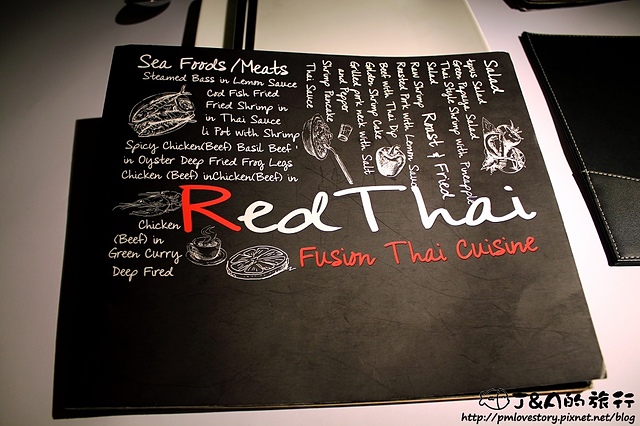 Sea Foods/Meats
Steamed Bass in Lemon Sauce
Cod Fish Fried
Fried Shrimp in
in Thai Sauce
li Pot with Shrimp
Spicy Chicken(Beef) Basil Beef
in Oyster Deep Fried Frog Legs
Chicken (Beef) inChicken(Beef) in
Chicken
(Beef) in
Green Curry
Deep Fired
Salad
Salad
Green Papaya Salad
Thai Style Shrimp with Pineapple
Roast & Fried
Salad
Raw Shrimp
Roasted Pork with Lemon Sauce
Beef with Thai Dip
Golden Shrimp Cake
Grilled pork neck with Salt
and Pepper
Shrimp Pancake
Thai Sauce
Red Thai
Fusion Thai Cuisine
J&A的旅行
http://pmlovestory.pixnet.net/blog